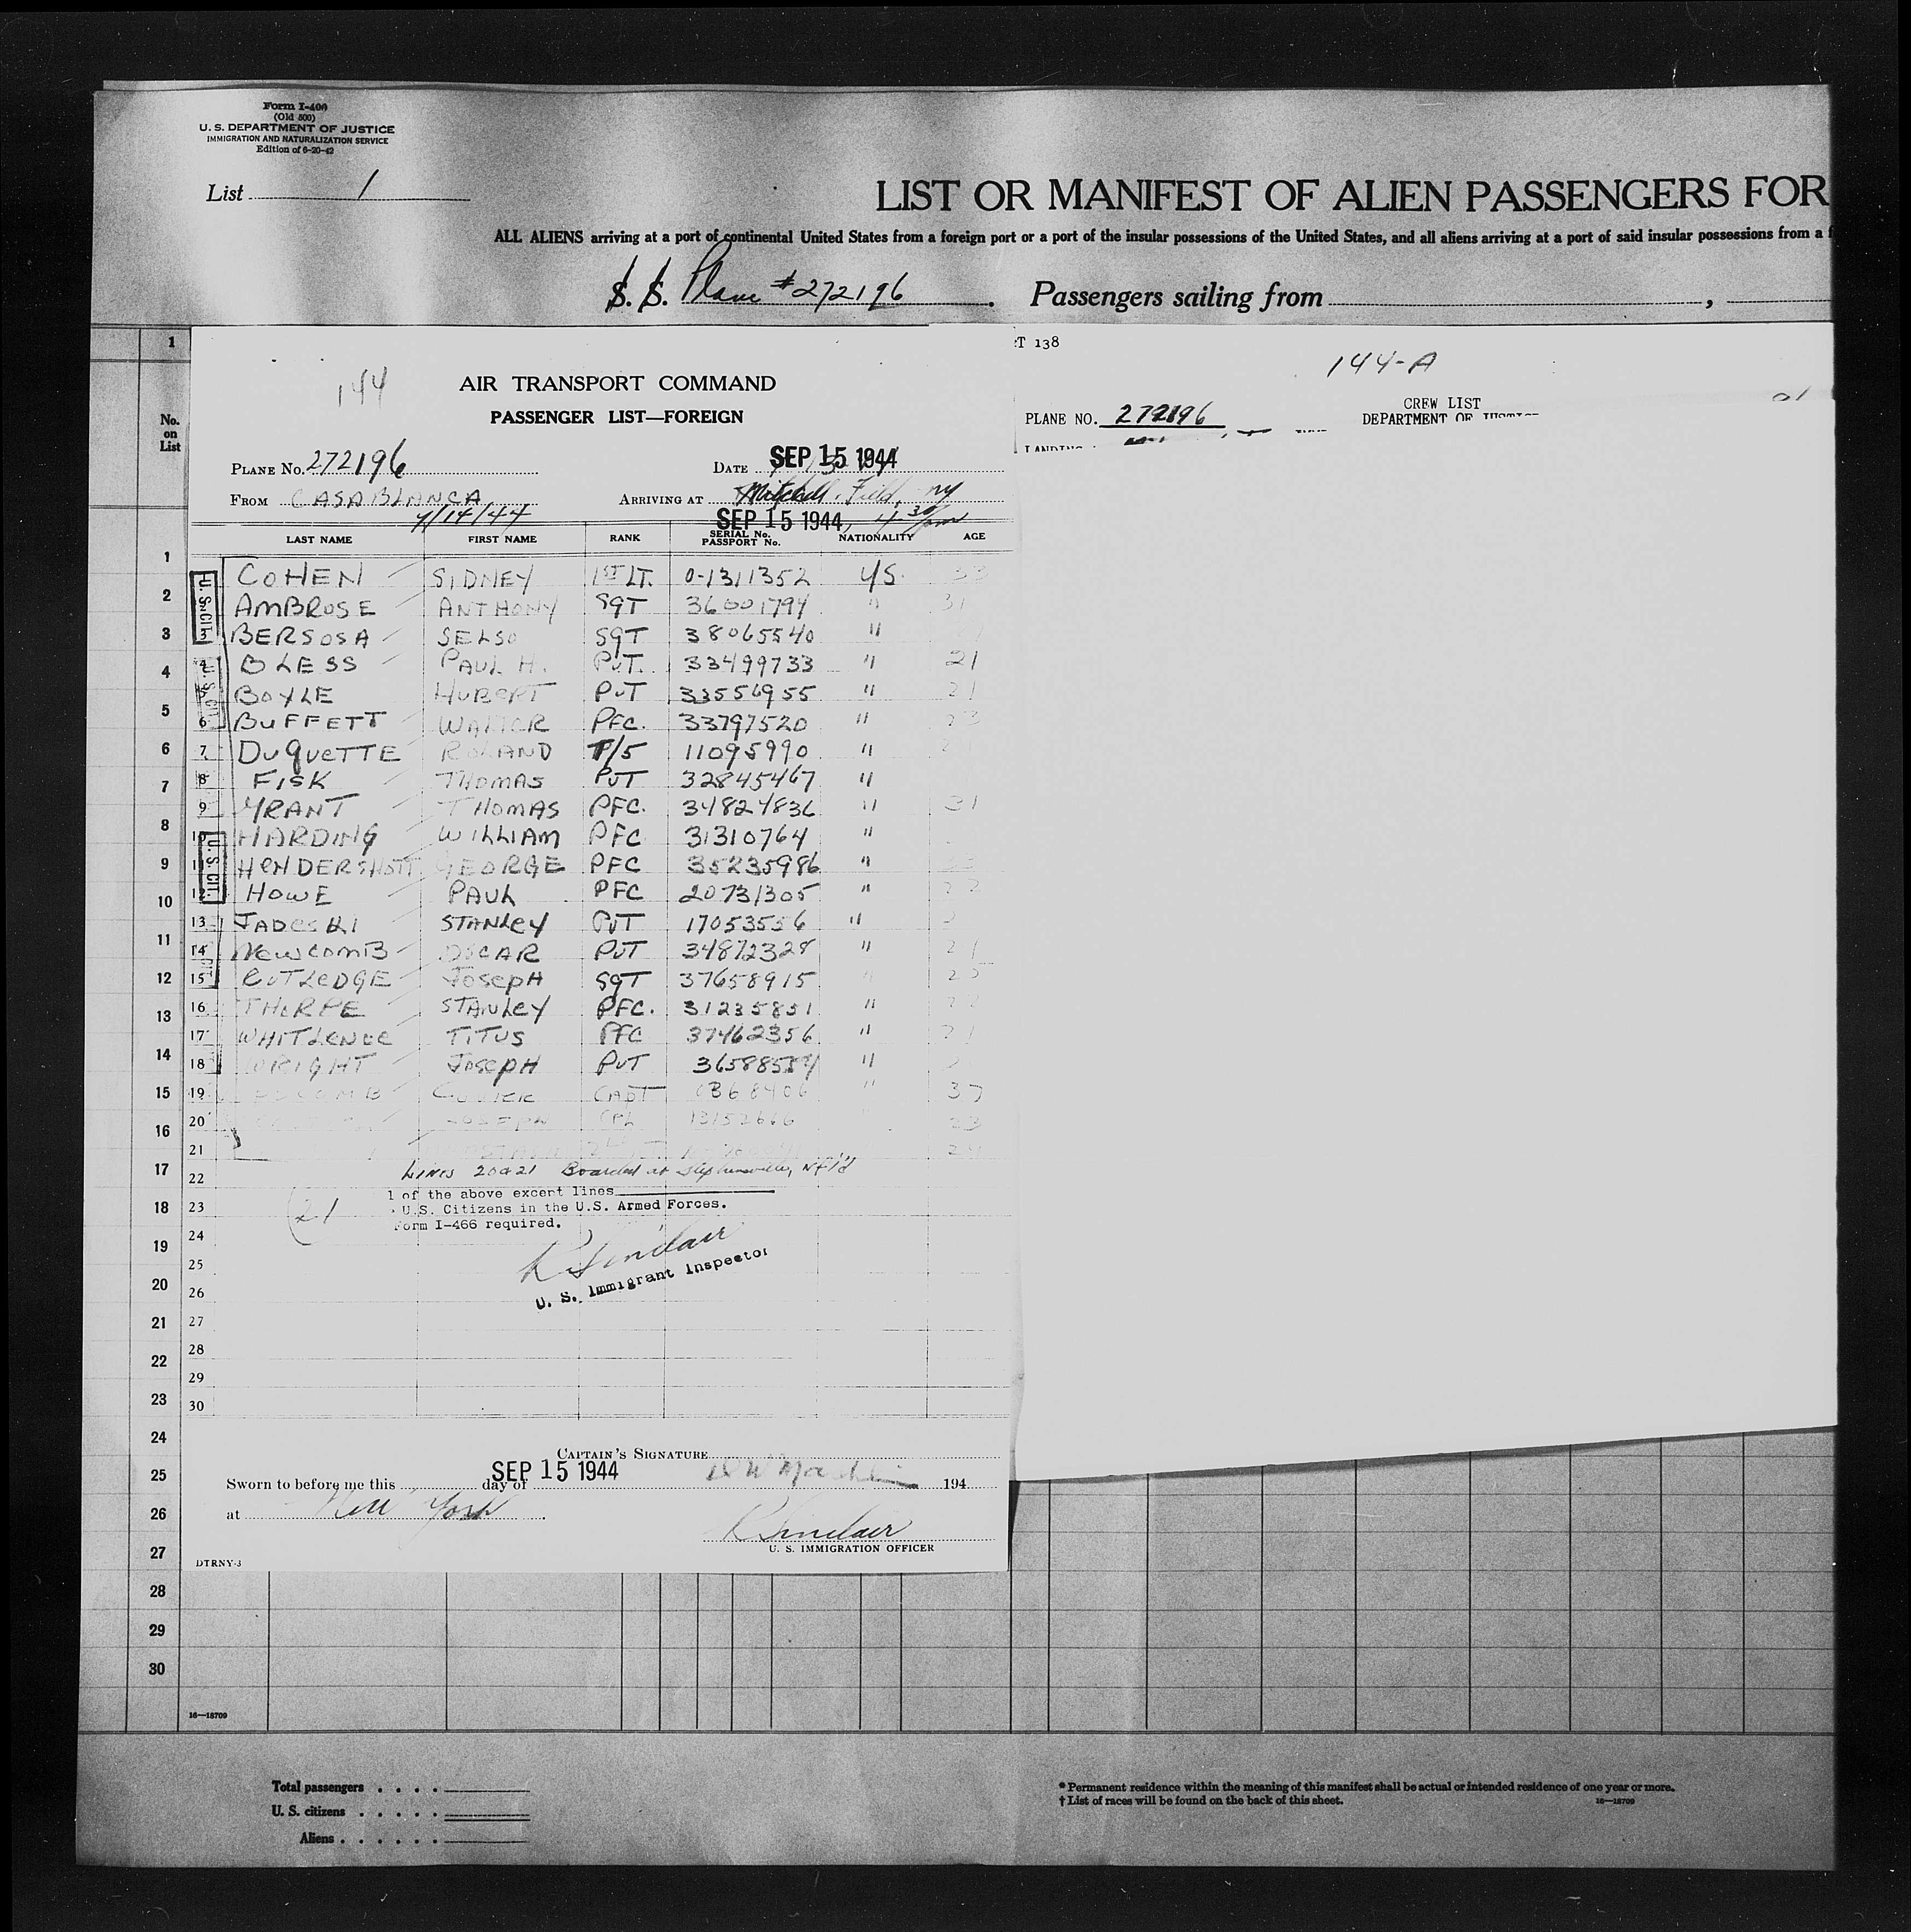 Form I-400
(Old 500)
U. S. DEPARTMENT OF JUSTICE
IMMIGRATION AND NATURALIZATION SERVICE
Edition of 6-20-42
List 1
LIST OR MANIFEST OF ALIEN PASSENGERS FOR
ALL ALIENS arriving at a port of continental United States from a foreign port or a port of the insular possessions of the United States, and all aliens arriving at a port of said insular possessions from a f
S. S. Plane #272196. Passengers sailing from ,
1
No.
on
List
144
AIR TRANSPORT COMMAND
PASSENGER LIST—FOREIGN
PLANE NO. 272196 DATE SEP 15 1944
FROM CASABLANCA ARRIVING AT Mitchell Field, NY
SEP 15 1944, 4:30 pm
LAST NAME FIRST NAME RANK SERIAL No. PASSPORT No. NATIONALITY AGE
COHEN SIDNEY 1ST LT. 0-1311352 US. 33
AMBROSE ANTHONY SGT 36001794 " 31
BERSOSA SELSO SGT 38065540 "
4 BLESS PAUL H. PVT. 33499733 " 21
BOYLE HUBERT PVT 33556955 " 21
6 BUFFETT WALTER PFC. 33797520 " 23
7 DUQUETTE ROLAND T/5 11095990 "
8 FISK THOMAS PVT 32845467 "
9 GRANT THOMAS PFC. 34824836 " 31
10 HARDING WILLIAM PFC 31310764 "
11 HENDERSHOTT GEORGE PFC 35235986 "
12 HOWE PAUL PFC 20731305 " 22
13 STANLEY PVT 17053556 "
14 NEWCOMB OSCAR PVT 34872328 " 21
15 RUTLEDGE JOSEPH SGT 37658915 "
16 THORPE STANLEY PFC. 31235851 " 22
17 WHITLENCE TITUS PFC 37462356 " 21
18 WRIGHT JOSEPH PVT "
19 CAPT 0368406 " 37
20 JOSEPH CPL 13152666 23
21
22 LINES 20&21 Boarded at Stephenville, Nfld
1 of the above except lines
23 U.S. Citizens in the U.S. Armed Forces.
(21
Form I-466 required.
24
25 R Sinclair
26 U. S. Immigrant Inspector
27
28
29
30
U. S. CIT.
U. S. CIT.
U. S. CIT.
CAPTAIN'S SIGNATURE
Sworn to before me this day of SEP 15 1944 194
at New York
R Sinclair
U. S. IMMIGRATION OFFICER
DTRNY-3
CT 138
144-A
CREW LIST
PLANE NO. 272196 DEPARTMENT OF JUSTICE
LANDING
1
2
3
4
5
6
7
8
9
10
11
12
13
14
15
16
17
18
19
20
21
22
23
24
25
26
27
28
29
30
16—18709
Total passengers . . . .
U. S. citizens . . . . .
Aliens . . . . . .
* Permanent residence within the meaning of this manifest shall be actual or intended residence of one year or more.
† List of races will be found on the back of this sheet. 16—18709